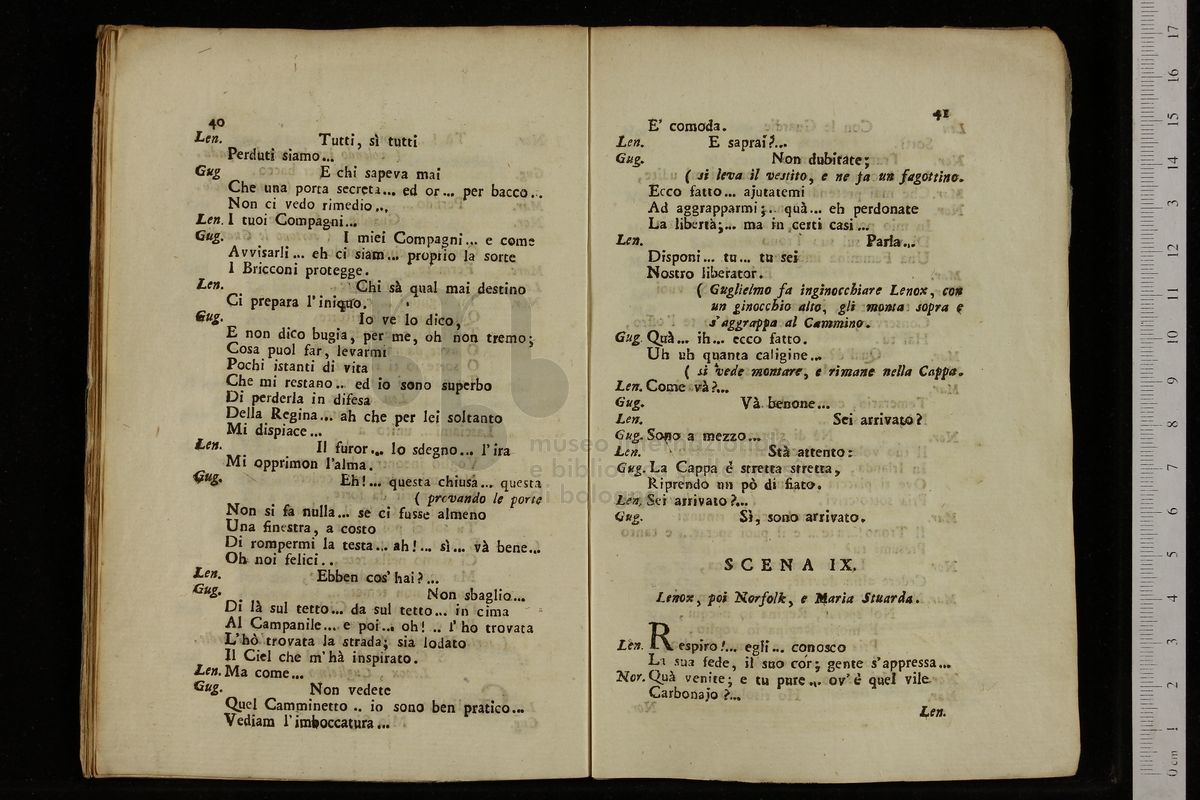 40
Len. Tutti, sì tutti
Perduti siamo...
Gug E chi sapeva mai
Che una porta secreta... ed or... per bacco..
Non ci vedo rimedio...
Len. I tuoi Compagni...
Gug. I miei Compagni... e come
Avvisarli... eh ci siam... proprio la sorte
I Bricconi protegge.
Len. Chi sà qual mai destino
Ci prepara l'iniquo.
Gug. Io ve lo dico,
E non dico bugia, per me, oh non tremo;
Cosa puol far, levarmi
Pochi istanti di vita
Che mi restano.. ed io sono superbo
Di perderla in difesa
Della Regina... ah che per lei soltanto
Mi dispiace...
Len. Il furor... lo sdegno... l'ira
Mi opprimon l'alma.
Gug. Eh!... questa chiusa... questa
( provando le porte
Non si fa nulla... se ci fusse almeno
Una finestra, a costo
Di rompermi la testa... ah!... sì... và bene...
Oh noi felici..
Len. Ebben cos' hai?...
Gug. Non sbaglio...
Di là sul tetto... da sul tetto... in cima
Al Campanile... e poi... oh! .. l' ho trovata
L' hò trovata la strada; sia lodato
Il Ciel che m' hà inspirato.
Len. Ma come...
Gug. Non vedete
Quel Camminetto .. io sono ben pratico...
Vediam l'imboccatura...
41
E' comoda.
Len. E saprai?...
Gug. Non dubitate;
( si leva il vestito, e ne fa un fagottino.
Ecco fatto... ajutatemi
Ad aggrapparmi;.. quà... eh perdonate
La libertà;... ma in certi casi...
Len. Parla...
Disponi... tu... tu sei
Nostro liberator.
( Guglielmo fa inginocchiare Lenox, con
un ginocchio alto, gli monta sopra e
s'aggrappa al Cammino.
Gug Quà... ih... ecco fatto.
Uh uh quanta caligine...
( si vede montare, e rimane nella Cappa.
Len. Come và?...
Gug. Và benone...
Len. Sei arrivato?
Gug. Sono a mezzo...
Len. Stà attento:
Gug. La Cappa è stretta stretta,
Riprendo un pò di fiato.
Len. Sei arrivato?...
Gug. Sì, sono arrivato.
SCENA IX.
Lenox, poi Norfolk, e Maria Stuarda.
Len. Respiro!... egli... conosco
La sua fede, il suo cor; gente s'appressa...
Nor. Quà venite; e tu pure... ov' è quel vile
Carbonajo?...
Len.